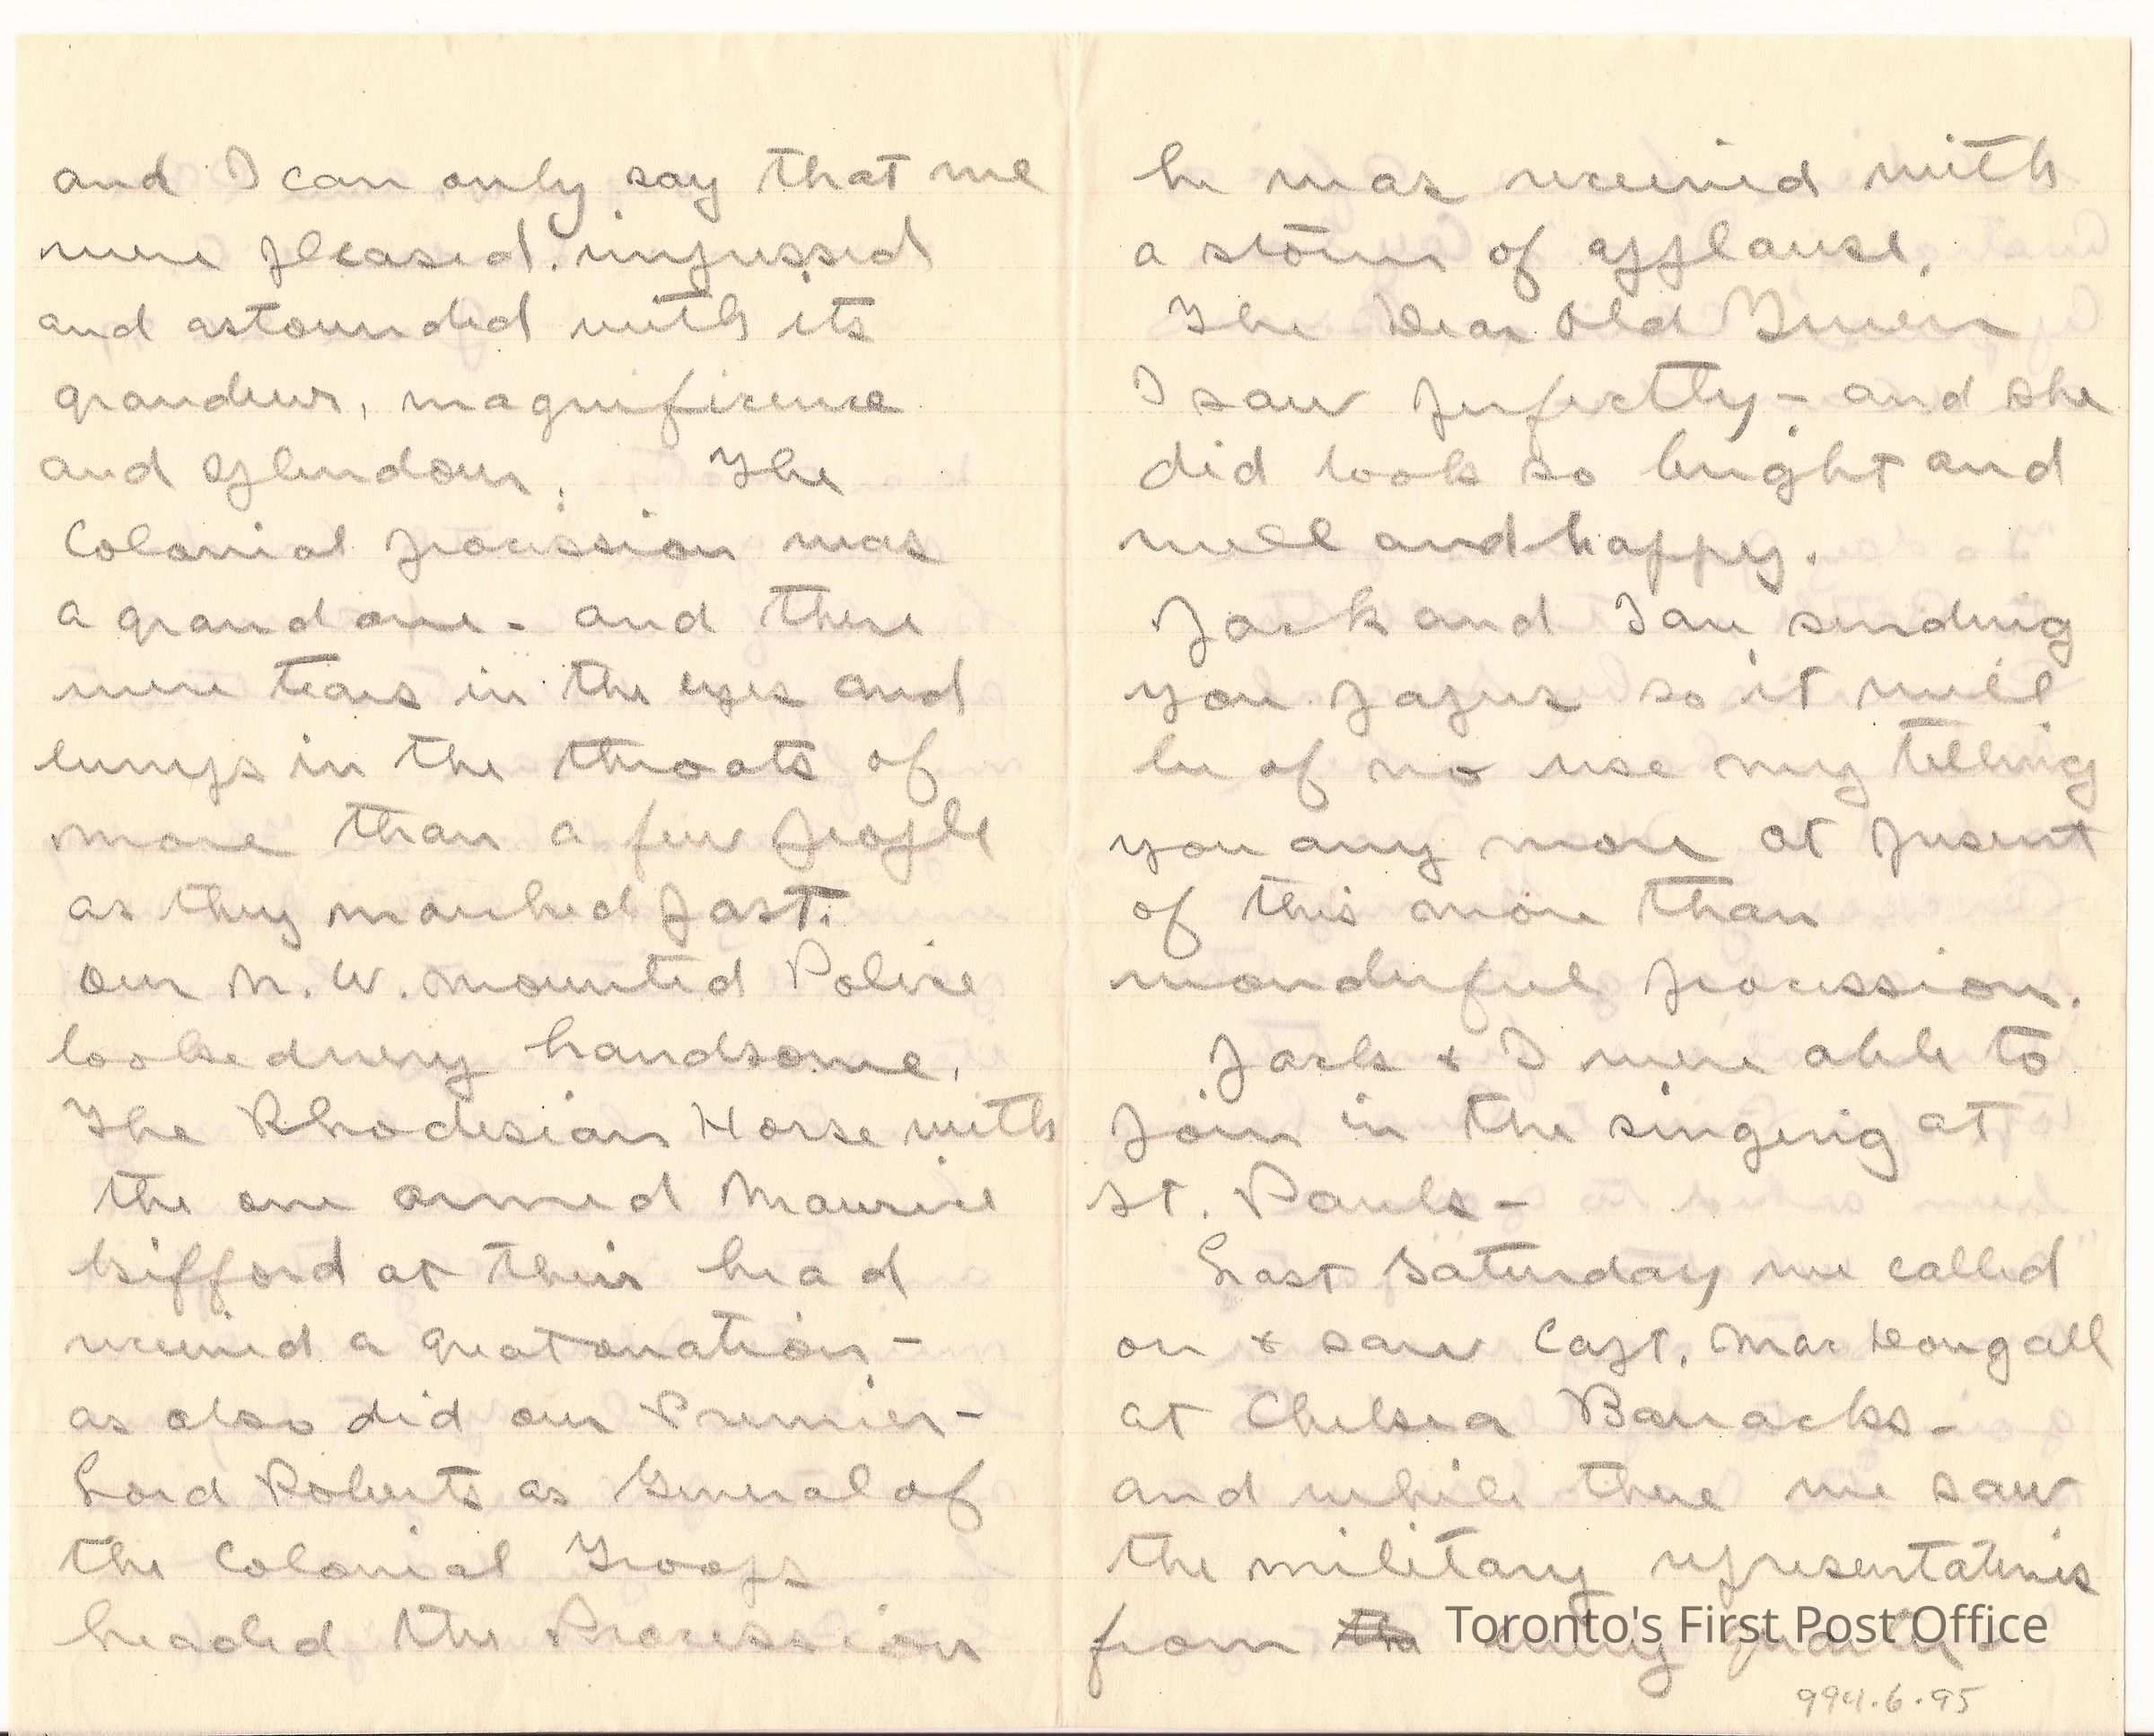 and I can only say that we
were pleased. impressed
and astounded with its
grandeur, magnificence
and splendour. The
Colonial procession was
a grand one - and there
were tears in the eyes and
lumps in the throats of
more than a few people
as they marched past.
Our N. W. Mounted Police
looked very handsome.
The Rhodesian Horse with
the one armed Maurice
Gifford at their head
received a great ovation -
as also did our Premier -
Lord Roberts as General of
the Colonial Troops
headed the Procession
he was received with
a storm of applause.
The Dear Old Queen
I saw perfectly - and she
did look so bright and
well and happy.
Jack and I are sending
you papers so it will
be of no use my telling
you any more at present
of this more than
wonderful procession.
Jack & I were able to
join in the singing at
St. Pauls -
Last Saturday we called
on & saw Capt. MacDougall
at Chelsea Barracks -
and while there we saw
the military representatives
from the every
Toronto's First Post Office
994.6.95